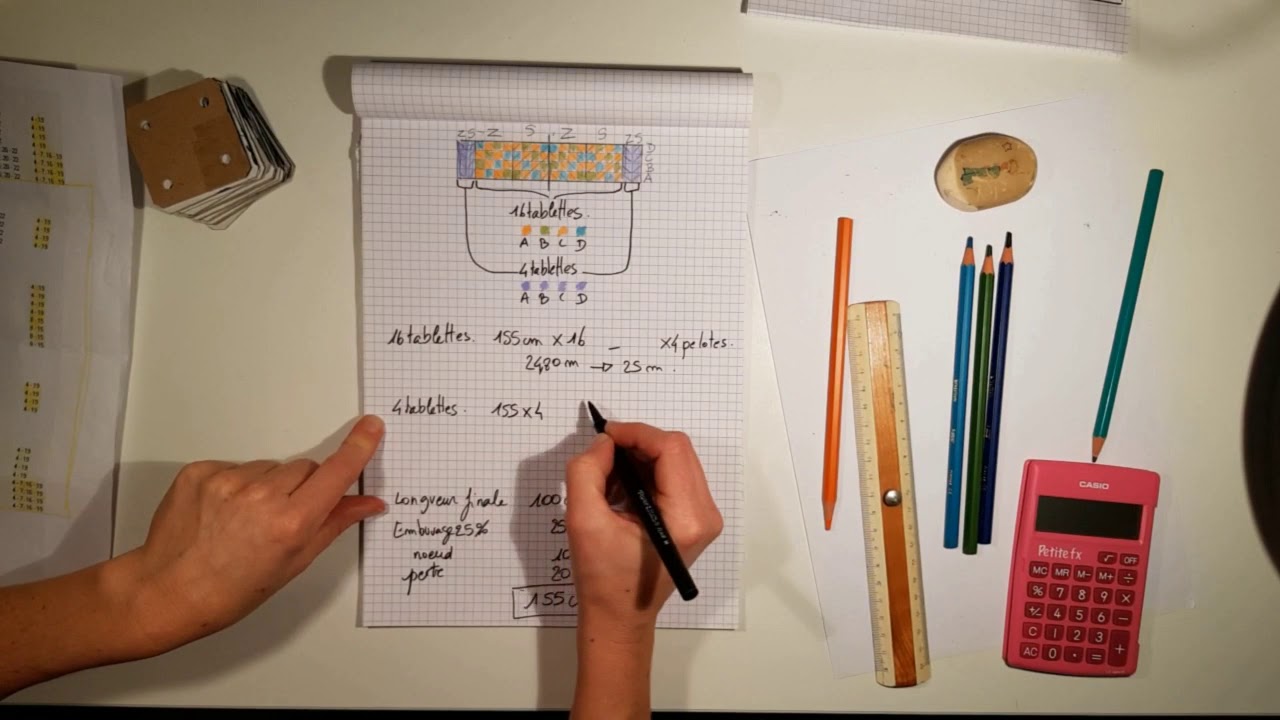 ZS Z S Z S ZS
D
C
B
A
16 tablettes.
A B C D
4 tablettes
A B C D
16 tablettes. 155cm x 16 – x4 pelotes.
24,80 m → 25 m.
4 tablettes. 155 x 4
Longueur finale 100
Embuvage 25% 25
noeud 10
perte 20
155c
CASIO
Petite fx
√ OFF
MC MR M- M+ ÷
% 7 8 9 ×
+/- 4 5 6 −
C 1 2 3 +
AC 0 · =